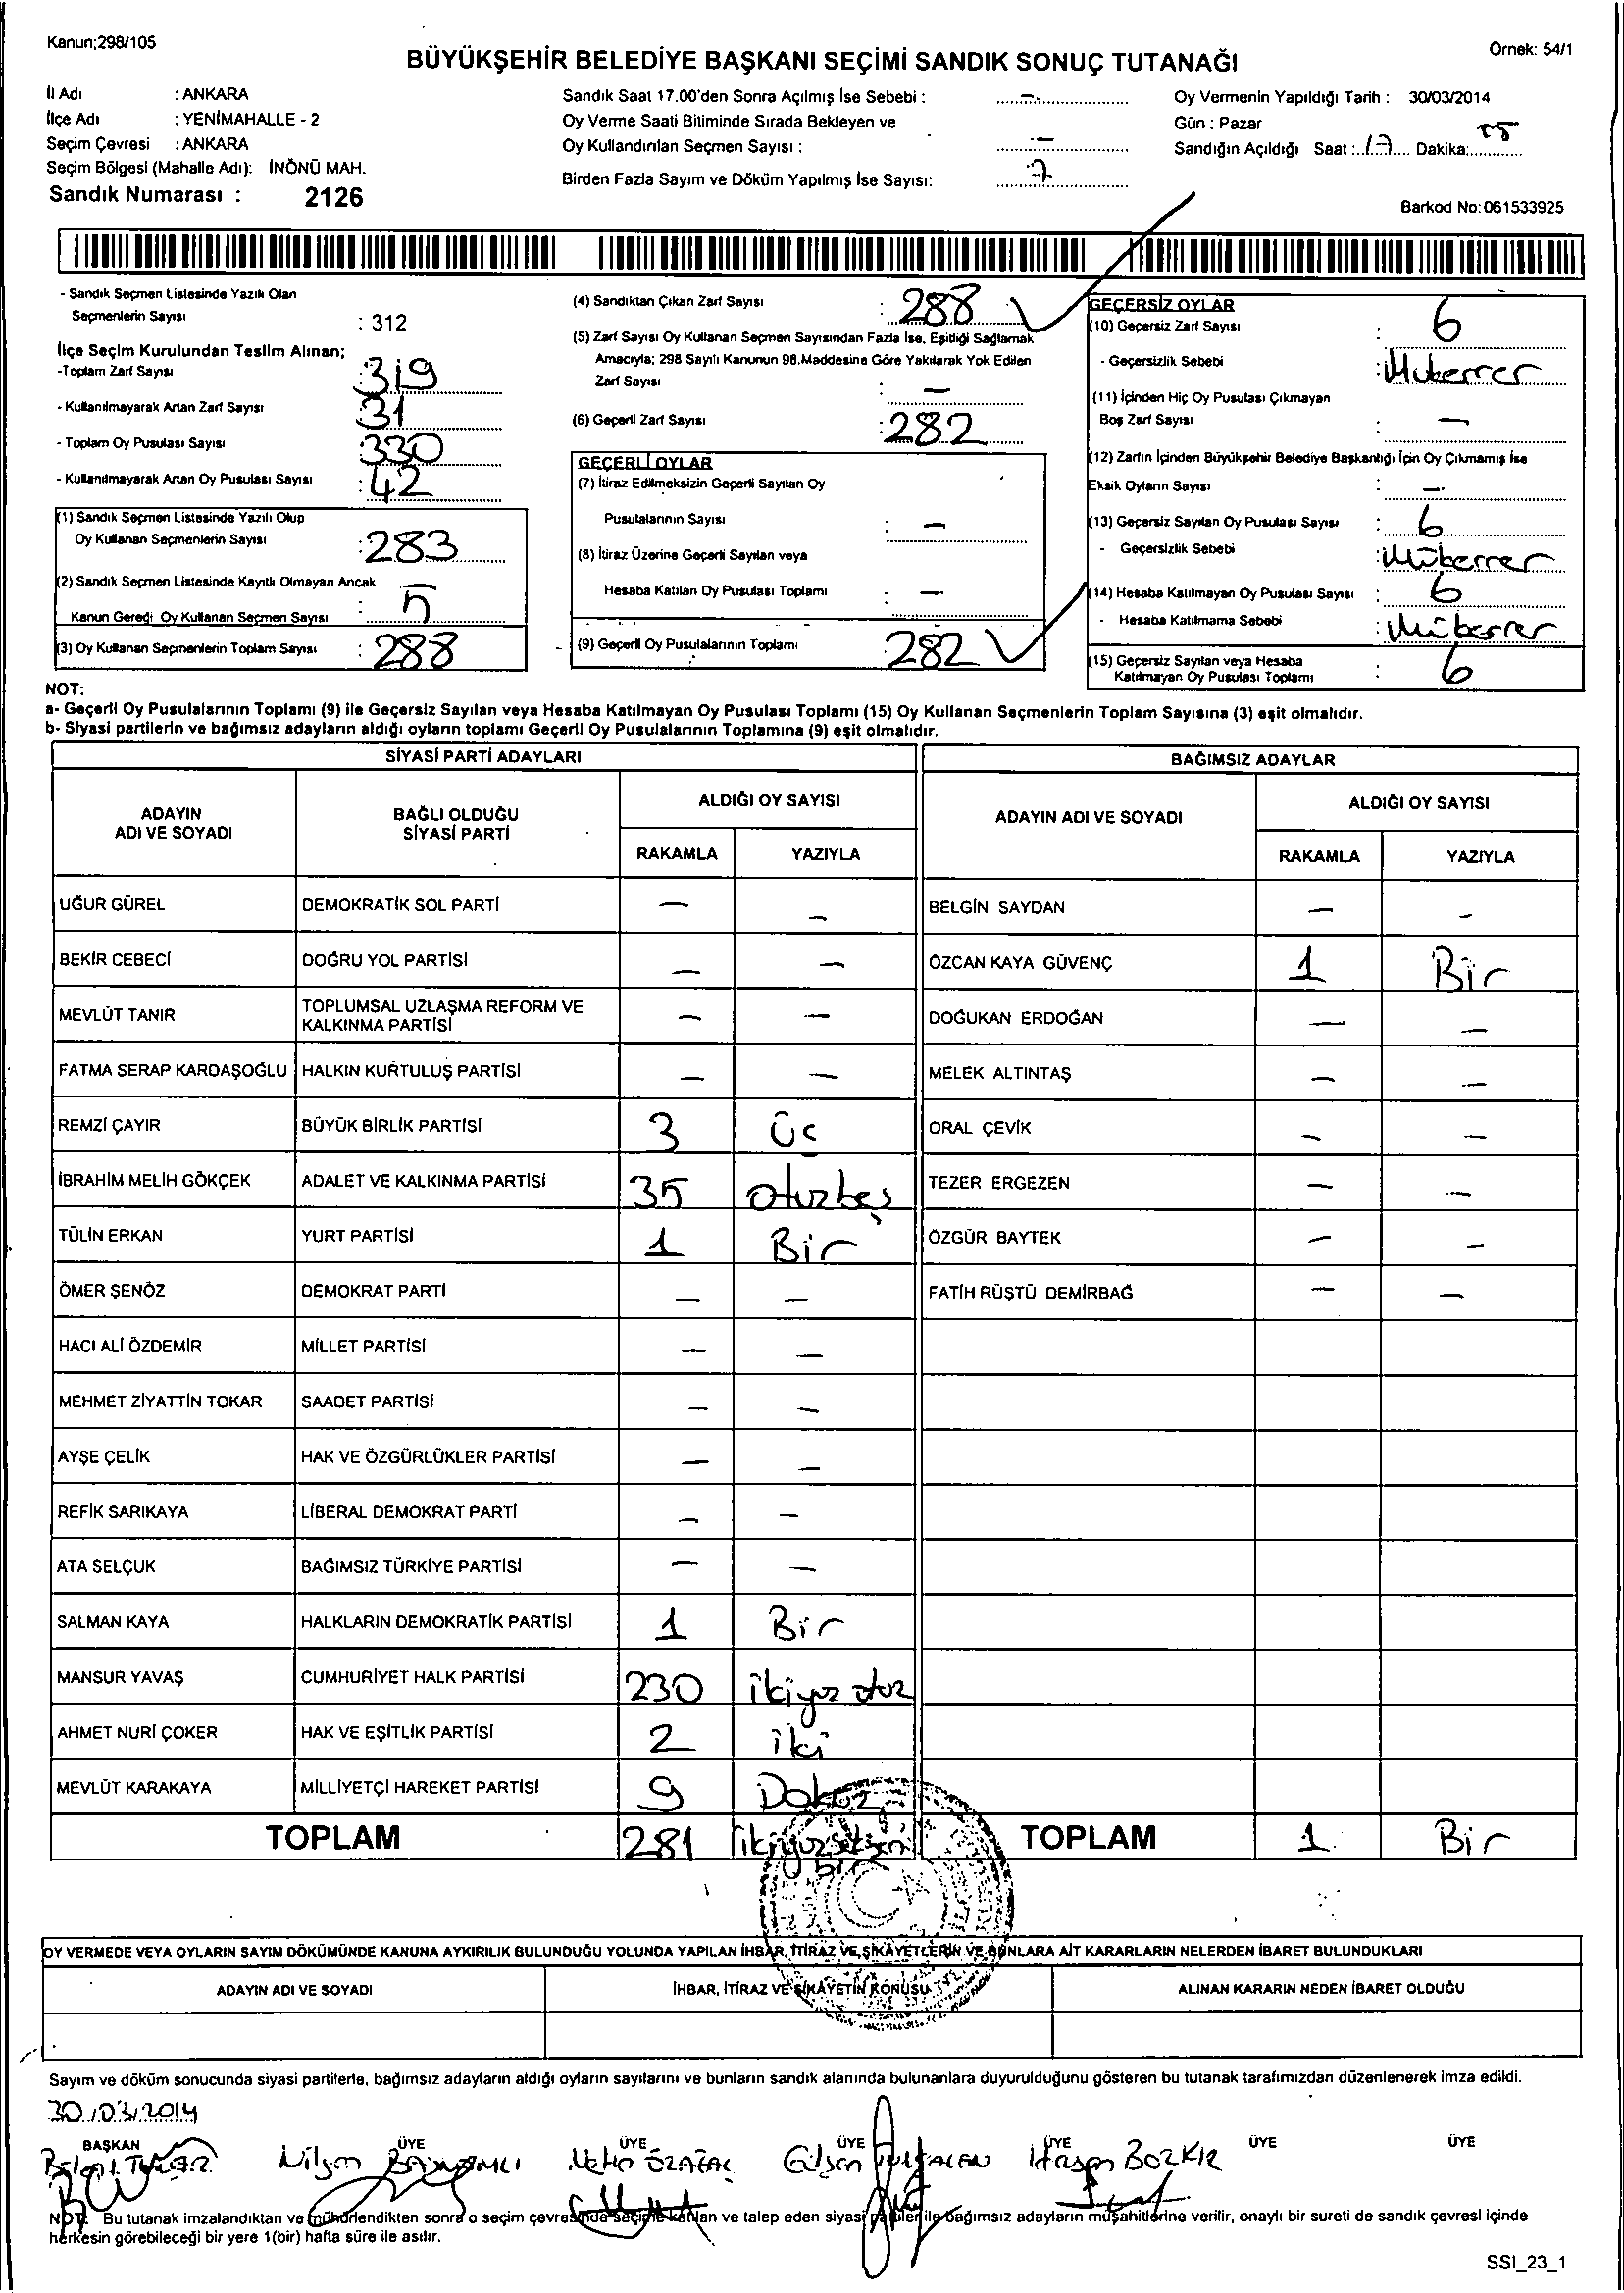 Kanun;298/105
BÜYÜKŞEHİR BELEDİYE BAŞKANI SEÇİMİ SANDIK SONUÇ TUTANAĞI
Örnek: 54/1
İl Adı : ANKARA
İlçe Adı : YENİMAHALLE - 2
Seçim Çevresi : ANKARA
Seçim Bölgesi (Mahalle Adı): İNÖNÜ MAH.
Sandık Numarası : 2126
Sandık Saat 17.00'den Sonra Açılmış İse Sebebi : -
Oy Verme Saati Bitiminde Sırada Bekleyen ve
Oy Kullandırılan Seçmen Sayısı : -
Birden Fazla Sayım ve Döküm Yapılmış İse Sayısı:
Oy Vermenin Yapıldığı Tarih : 30/03/2014
Gün : Pazar
Sandığın Açıldığı Saat : 17 Dakika:
Barkod No:061533925
- Sandık Seçmen Listesinde Yazılı Olan
Seçmenlerin Sayısı : 312
İlçe Seçim Kurulundan Teslim Alınan;
-Toplam Zarf Sayısı : 319
- Kullanılmayarak Artan Zarf Sayısı : 31
- Toplam Oy Pusulası Sayısı : 330
- Kullanılmayarak Artan Oy Pusulası Sayısı : 42
(1) Sandık Seçmen Listesinde Yazılı Olup
Oy Kullanan Seçmenlerin Sayısı : 283
(2) Sandık Seçmen Listesinde Kayıtlı Olmayan Ancak
Kanun Gereği Oy Kullanan Seçmen Sayısı : 5
(3) Oy Kullanan Seçmenlerin Toplam Sayısı : 288
(4) Sandıktan Çıkan Zarf Sayısı : 288
(5) Zarf Sayısı Oy Kullanan Seçmen Sayısından Fazla İse, Eşitliği Sağlamak
Amacıyla; 298 Sayılı Kanunun 98.Maddesine Göre Yakılarak Yok Edilen
Zarf Sayısı : -
(6) Geçerli Zarf Sayısı : 282
GEÇERLİ OYLAR
(7) İtiraz Edilmeksizin Geçerli Sayılan Oy
Pusulalarının Sayısı : -
(8) İtiraz Üzerine Geçerli Sayılan veya
Hesaba Katılan Oy Pusulası Toplamı : -
(9) Geçerli Oy Pusulalarının Toplamı : 282
GEÇERSİZ OYLAR
(10) Geçersiz Zarf Sayısı : 6
- Geçersizlik Sebebi : Mükerrer
(11) İçinden Hiç Oy Pusulası Çıkmayan
Boş Zarf Sayısı : -
(12) Zarfın İçinden Büyükşehir Belediye Başkanlığı İçin Oy Çıkmamış İse
Eksik Oyların Sayısı : -
(13) Geçersiz Sayılan Oy Pusulası Sayısı : 6
- Geçersizlik Sebebi : Mükerrer
(14) Hesaba Katılmayan Oy Pusulası Sayısı : 6
- Hesaba Katılmama Sebebi : Mükerrer
(15) Geçersiz Sayılan veya Hesaba
Katılmayan Oy Pusulası Toplamı : 6
NOT:
a- Geçerli Oy Pusulalarının Toplamı (9) ile Geçersiz Sayılan veya Hesaba Katılmayan Oy Pusulası Toplamı (15) Oy Kullanan Seçmenlerin Toplam Sayısına (3) eşit olmalıdır.
b- Siyasi partilerin ve bağımsız adayların aldığı oyların toplamı Geçerli Oy Pusulalarının Toplamına (9) eşit olmalıdır.
SİYASİ PARTİ ADAYLARI
ADAYIN ADI VE SOYADI
BAĞLI OLDUĞU SİYASİ PARTİ
ALDIĞI OY SAYISI
RAKAMLA YAZIYLA
UĞUR GÜREL DEMOKRATİK SOL PARTİ - -
BEKİR CEBECİ DOĞRU YOL PARTİSİ - -
MEVLÜT TANIR TOPLUMSAL UZLAŞMA REFORM VE KALKINMA PARTİSİ - -
FATMA SERAP KARDAŞOĞLU HALKIN KURTULUŞ PARTİSİ - -
REMZİ ÇAYIR BÜYÜK BİRLİK PARTİSİ 3 Üç
İBRAHİM MELİH GÖKÇEK ADALET VE KALKINMA PARTİSİ 35 otuzbeş
TÜLİN ERKAN YURT PARTİSİ 1 Bir
ÖMER ŞENÖZ DEMOKRAT PARTİ - -
HACI ALİ ÖZDEMİR MİLLET PARTİSİ - -
MEHMET ZİYATTİN TOKAR SAADET PARTİSİ - -
AYŞE ÇELİK HAK VE ÖZGÜRLÜKLER PARTİSİ - -
REFİK SARIKAYA LİBERAL DEMOKRAT PARTİ - -
ATA SELÇUK BAĞIMSIZ TÜRKİYE PARTİSİ - -
SALMAN KAYA HALKLARIN DEMOKRATİK PARTİSİ 1 Bir
MANSUR YAVAŞ CUMHURİYET HALK PARTİSİ 230 ikiyüz otuz
AHMET NURİ ÇOKER HAK VE EŞİTLİK PARTİSİ 2 iki
MEVLÜT KARAKAYA MİLLİYETÇİ HAREKET PARTİSİ 9 Dokuz
TOPLAM 281 ikiyüzseksen bir
BAĞIMSIZ ADAYLAR
ADAYIN ADI VE SOYADI
ALDIĞI OY SAYISI
RAKAMLA YAZIYLA
BELGİN SAYDAN - -
ÖZCAN KAYA GÜVENÇ 1 Bir
DOĞUKAN ERDOĞAN - -
MELEK ALTINTAŞ - -
ORAL ÇEVİK - -
TEZER ERGEZEN - -
ÖZGÜR BAYTEK - -
FATİH RÜŞTÜ DEMİRBAĞ - -
TOPLAM 1 Bir
OY VERMEDE VEYA OYLARIN SAYIM DÖKÜMÜNDE KANUNA AYKIRILIK BULUNDUĞU YOLUNDA YAPILAN İHBAR, İTİRAZ VE ŞİKAYETLERİN VE BUNLARA AİT KARARLARIN NELERDEN İBARET BULUNDUKLARI
ADAYIN ADI VE SOYADI İHBAR, İTİRAZ VE ŞİKAYETİN KONUSU ALINAN KARARIN NEDEN İBARET OLDUĞU
Sayım ve döküm sonucunda siyasi partilerle, bağımsız adayların aldığı oyların sayılarını ve bunların sandık alanında bulunanlara duyurulduğunu gösteren bu tutanak tarafımızdan düzenlenerek imza edildi.
30/03/2014
BAŞKAN ÜYE ÜYE ÜYE ÜYE ÜYE ÜYE
Nilgün Metin Gülşen Hasan BOZKIR
NOT: Bu tutanak imzalandıktan ve mühürlendikten sonra o seçim çevresinde seçime katılan ve talep eden siyasi partiler ile bağımsız adayların müşahitlerine verilir, onaylı bir sureti de sandık çevresi içinde
herkesin görebileceği bir yere 1(bir) hafta süre ile asılır.
SSI_23_1